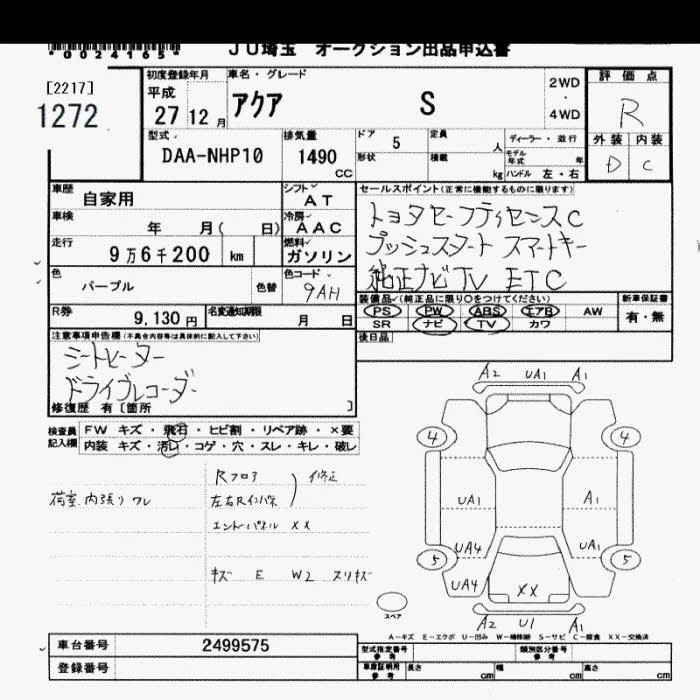 *0024165*
JU埼玉 オークション出品申込書
[2217]
1272
初度登録年月 車名・グレード 2WD ・ 4WD 評価点
平成 27 12月 アクア S R
外装 内装
D C
型式 排気量 ドア 5 定員 人 ディーラー・並行
DAA-NHP10 1490 CC 形状 積載 kg モデル年式 年 ハンドル 左・右
車歴 自家用 シフト AT
車検 年 月( 日) 冷房 AAC
走行 9万6千200 km 燃料 ガソリン
色 パープル 色替 色コード 9AH
R券 9,130円 名変通知期限 月 日
セールスポイント(正常に機能するものに限ります)
トヨタセーフティセンスC
プッシュスタート スマートキー
純正ナビTV ETC
装備品(純正品に限り○をつけてください) 新車保証書
PS PW ABS エアB AW 有・無
SR ナビ TV カワ
後日品
注意事項申告欄(不具合内容等は具体的に記入して下さい)
シートヒーター
ドライブレコーダー
修復歴 有[箇所 ]
検査員記入欄
FW キズ・飛石・ヒビ割・リペア跡・×要
内装 キズ・汚レ・コゲ・穴・スレ・キレ・破レ
荷室内張りワレ
Rフロア
左右Rインパネ
修正
エンドパネル XX
キズ E W2 スリキズ
A2 UA1 A1
4 4
UA1 A1
UA4 UA1
5 5
UA4 XX
A2 U1 A1
スペア
A-キズ E-エクボ U-凹み W-補修跡 S-サビ C-腐食 XX-交換済
車台番号 2499575
登録番号
型式指定番号 参考 類別区分番号 参考
車庫証明用 参考 長さ cm 幅 cm 高さ cm